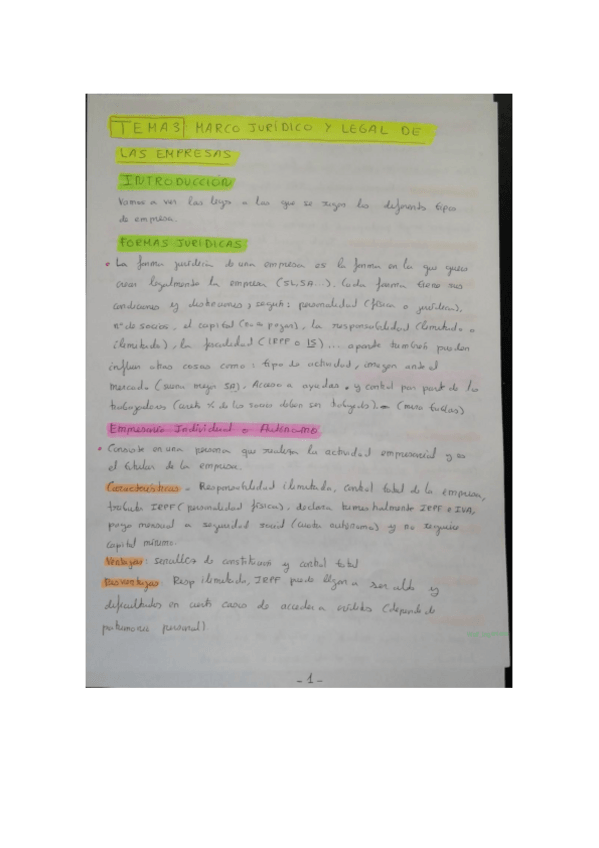 TEMA 3: MARCO JURÍDICO Y LEGAL DE
LAS EMPRESAS
INTRODUCCIÓN
Vamos a ver las leyes a las que se rigen los diferentes tipos
de empresa.
FORMAS JURÍDICAS
• La forma jurídica de una empresa es la forma en la que quieres
crear legalmente la empresa (SL, SA...). Cada forma tiene sus
condiciones y distinciones, según: personalidad (física o jurídica),
nº de socios, el capital, la responsabilidad (limitada o
ilimitada), la fiscalidad (IRPF o IS)... aparte también pueden
influir otras cosas como: tipo de actividad, imagen ante el
mercado (suena mejor SA), Acceso a ayudas y control por parte de los
trabajadores (cierto % de los socios deben ser trabajad). (mirar tablas)
Empresario Individual o Autónomo
• Consiste en una persona que realiza la actividad empresarial y es
el titular de la empresa.
Características - Responsabilidad ilimitada, control total de la empresa,
tributa IRPF (personalidad física), declara trimestralmente IRPF e IVA,
pago mensual a seguridad social (cuota autónomo) y no requiere
capital mínimo.
Ventajas: sencillez de constitución y control total
Desventajas: Resp ilimitada, IRPF puede llegar a ser alto y
dificultades en cierto casos de acceder a créditos (depende de
patrimonio personal)
- 1 -